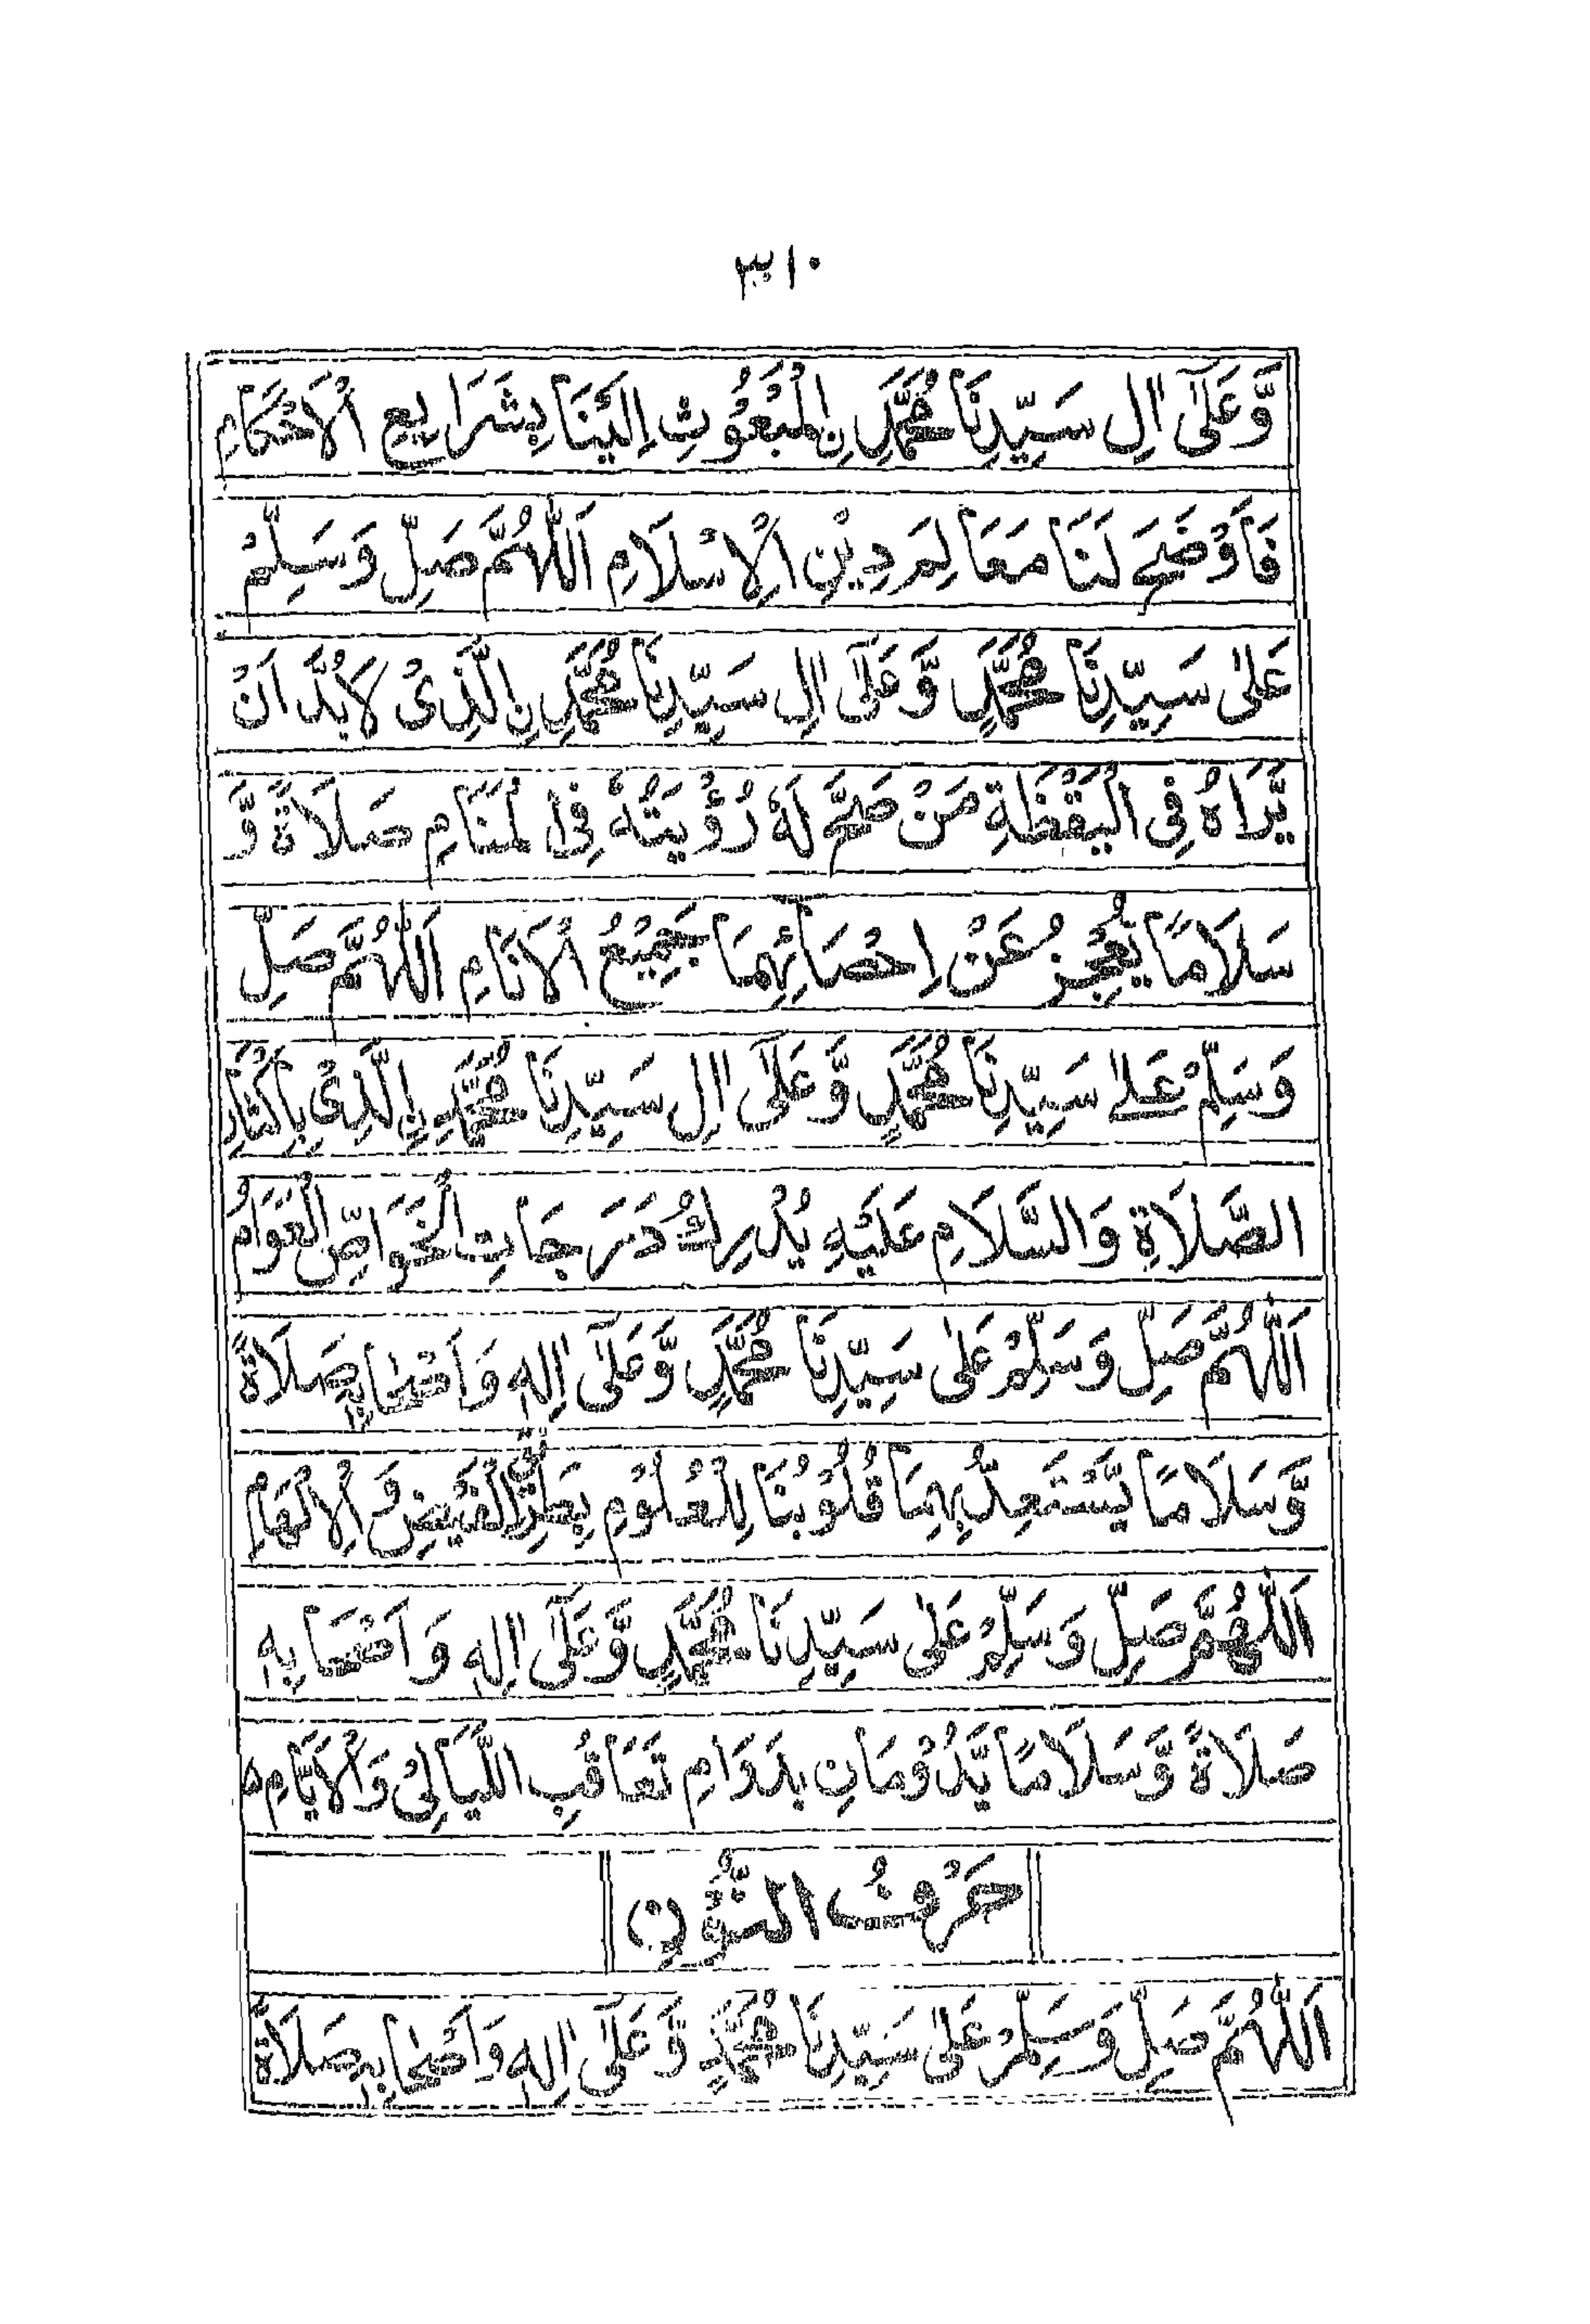 ٣١٠
وَّعَلٰۤى اٰلِ سَيِّدِنَا مُحَمَّدِ نِ الْمَبْعُوْثِ اِلَيْنَا بِشَرَايِعِ الْاَحْكَامِ
فَاَوْضَحَ لَنَا مَعَالِمَ دِيْنِ الْاِسْلَامِ اَللّٰهُمَّ صَلِّ وَسَلِّمْ
عَلٰى سَيِّدِنَا مُحَمَّدٍ وَّعَلٰۤى اٰلِ سَيِّدِنَا مُحَمَّدِ نِ الَّذِىْ لَابُدَّ اَنْ
يَّرَاهُ فِى الْيَقْظَةِ مَنْ صَحَّ لَهٗ رُؤْيَتُهٗ فِى الْمَنَامِ صَلَاةً وَّ
سَلَامًا يَعْجِزُ عَنْ اِحْصَائِهِمَا جَمِيْعُ الْاَنَامِ اَللّٰهُمَّ صَلِّ
وَسَلِّمْ عَلٰى سَيِّدِنَا مُحَمَّدٍ وَّعَلٰۤى اٰلِ سَيِّدِنَا مُحَمَّدِ نِ الَّذِىْ بِاِكْثَارِ
الصَّلَاةِ وَالسَّلَامِ عَلَيْهِ يُدْرِكُ دَرَجَاتِ الْخَوَاصِّ الْعَوَامُ
اَللّٰهُمَّ صَلِّ وَسَلِّمْ عَلٰى سَيِّدِنَا مُحَمَّدٍ وَّعَلٰۤى اٰلِهٖ وَاَصْحٰابِهٖ صَلَاةً
وَّسَلَامًا يَّسْتَعِدُّ بِهِمَا قُلُوْبُنَا لِلْعُلُوْمِ بِطَرِيْقِ الْفَيْضِ وَ الْاِلْهَامِ
اَللّٰهُمَّ صَلِّ وَسَلِّمْ عَلٰى سَيِّدِنَا مُحَمَّدٍ وَّعَلٰۤى اٰلِهٖ وَاَصْحَابِهٖ
صَلَاةً وَّسَلَامًا يَّدُوْمَانِ بِدَوَامِ تَعَاقُبِ اللَّيَالِىْ وَالْاَيَّامِ ه
حَرْفُ النُّوْنِ
اَللّٰهُمَّ صَلِّ وَسَلِّمْ عَلٰى سَيِّدِنَا مُحَمَّدٍ وَّعَلٰۤى اٰلِهٖ وَاَصْحٰابِهٖ صَلَاةً